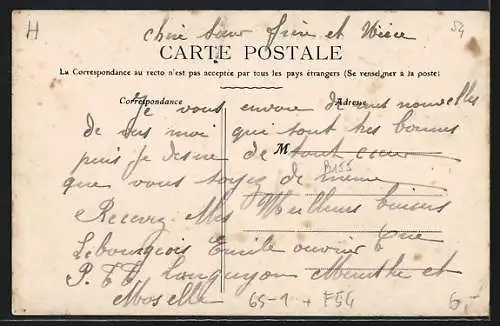 H
54
chere Sœur frère et Nièce
CARTE POSTALE
La Correspondance au recto n'est pas acceptée par tous les pays étrangers (Se renseigner à la poste)
Correspondance
Adresse
Je vous envoie de mes nouvelles
de mes moi qui sont tres bonnes
puis Je desire de tout cœur
M
B155
que vous soyez de meme
Recevez Mes Meilleurs baisers
Lebourgeois Emile ouvrier
P. T. T. Longuyon Meurthe et
Moselle
65-1 + F54
6-